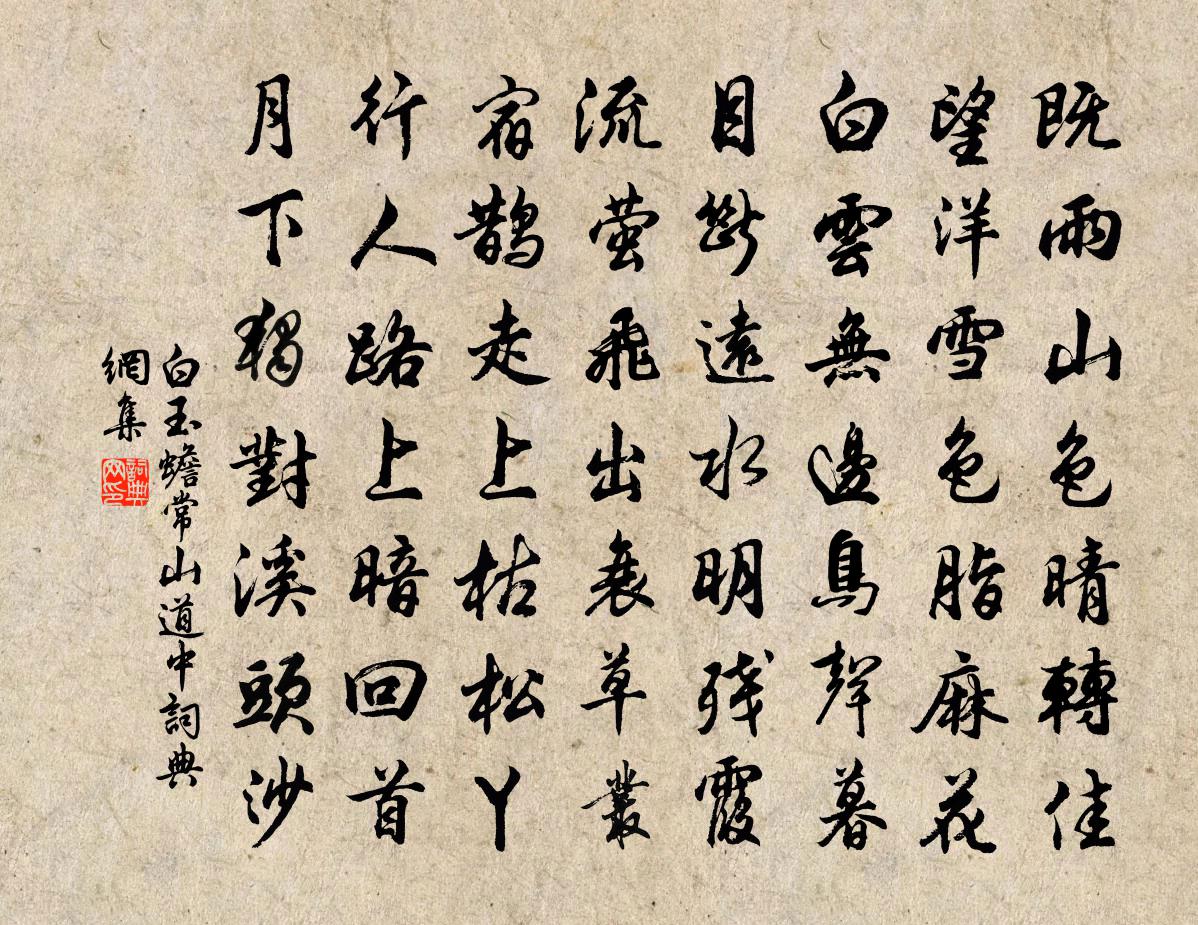 既雨山色晴轉佳
望洋雪色脂麻花
白雲無邊鳥聲暮
目斷遠水明残霞
流萤飛出衰草叢
宿鵲走上枯松丫
行人路上暗回首
月下獨對溪頭沙
白玉蟾常山道中詞典
網集
詞典
网印